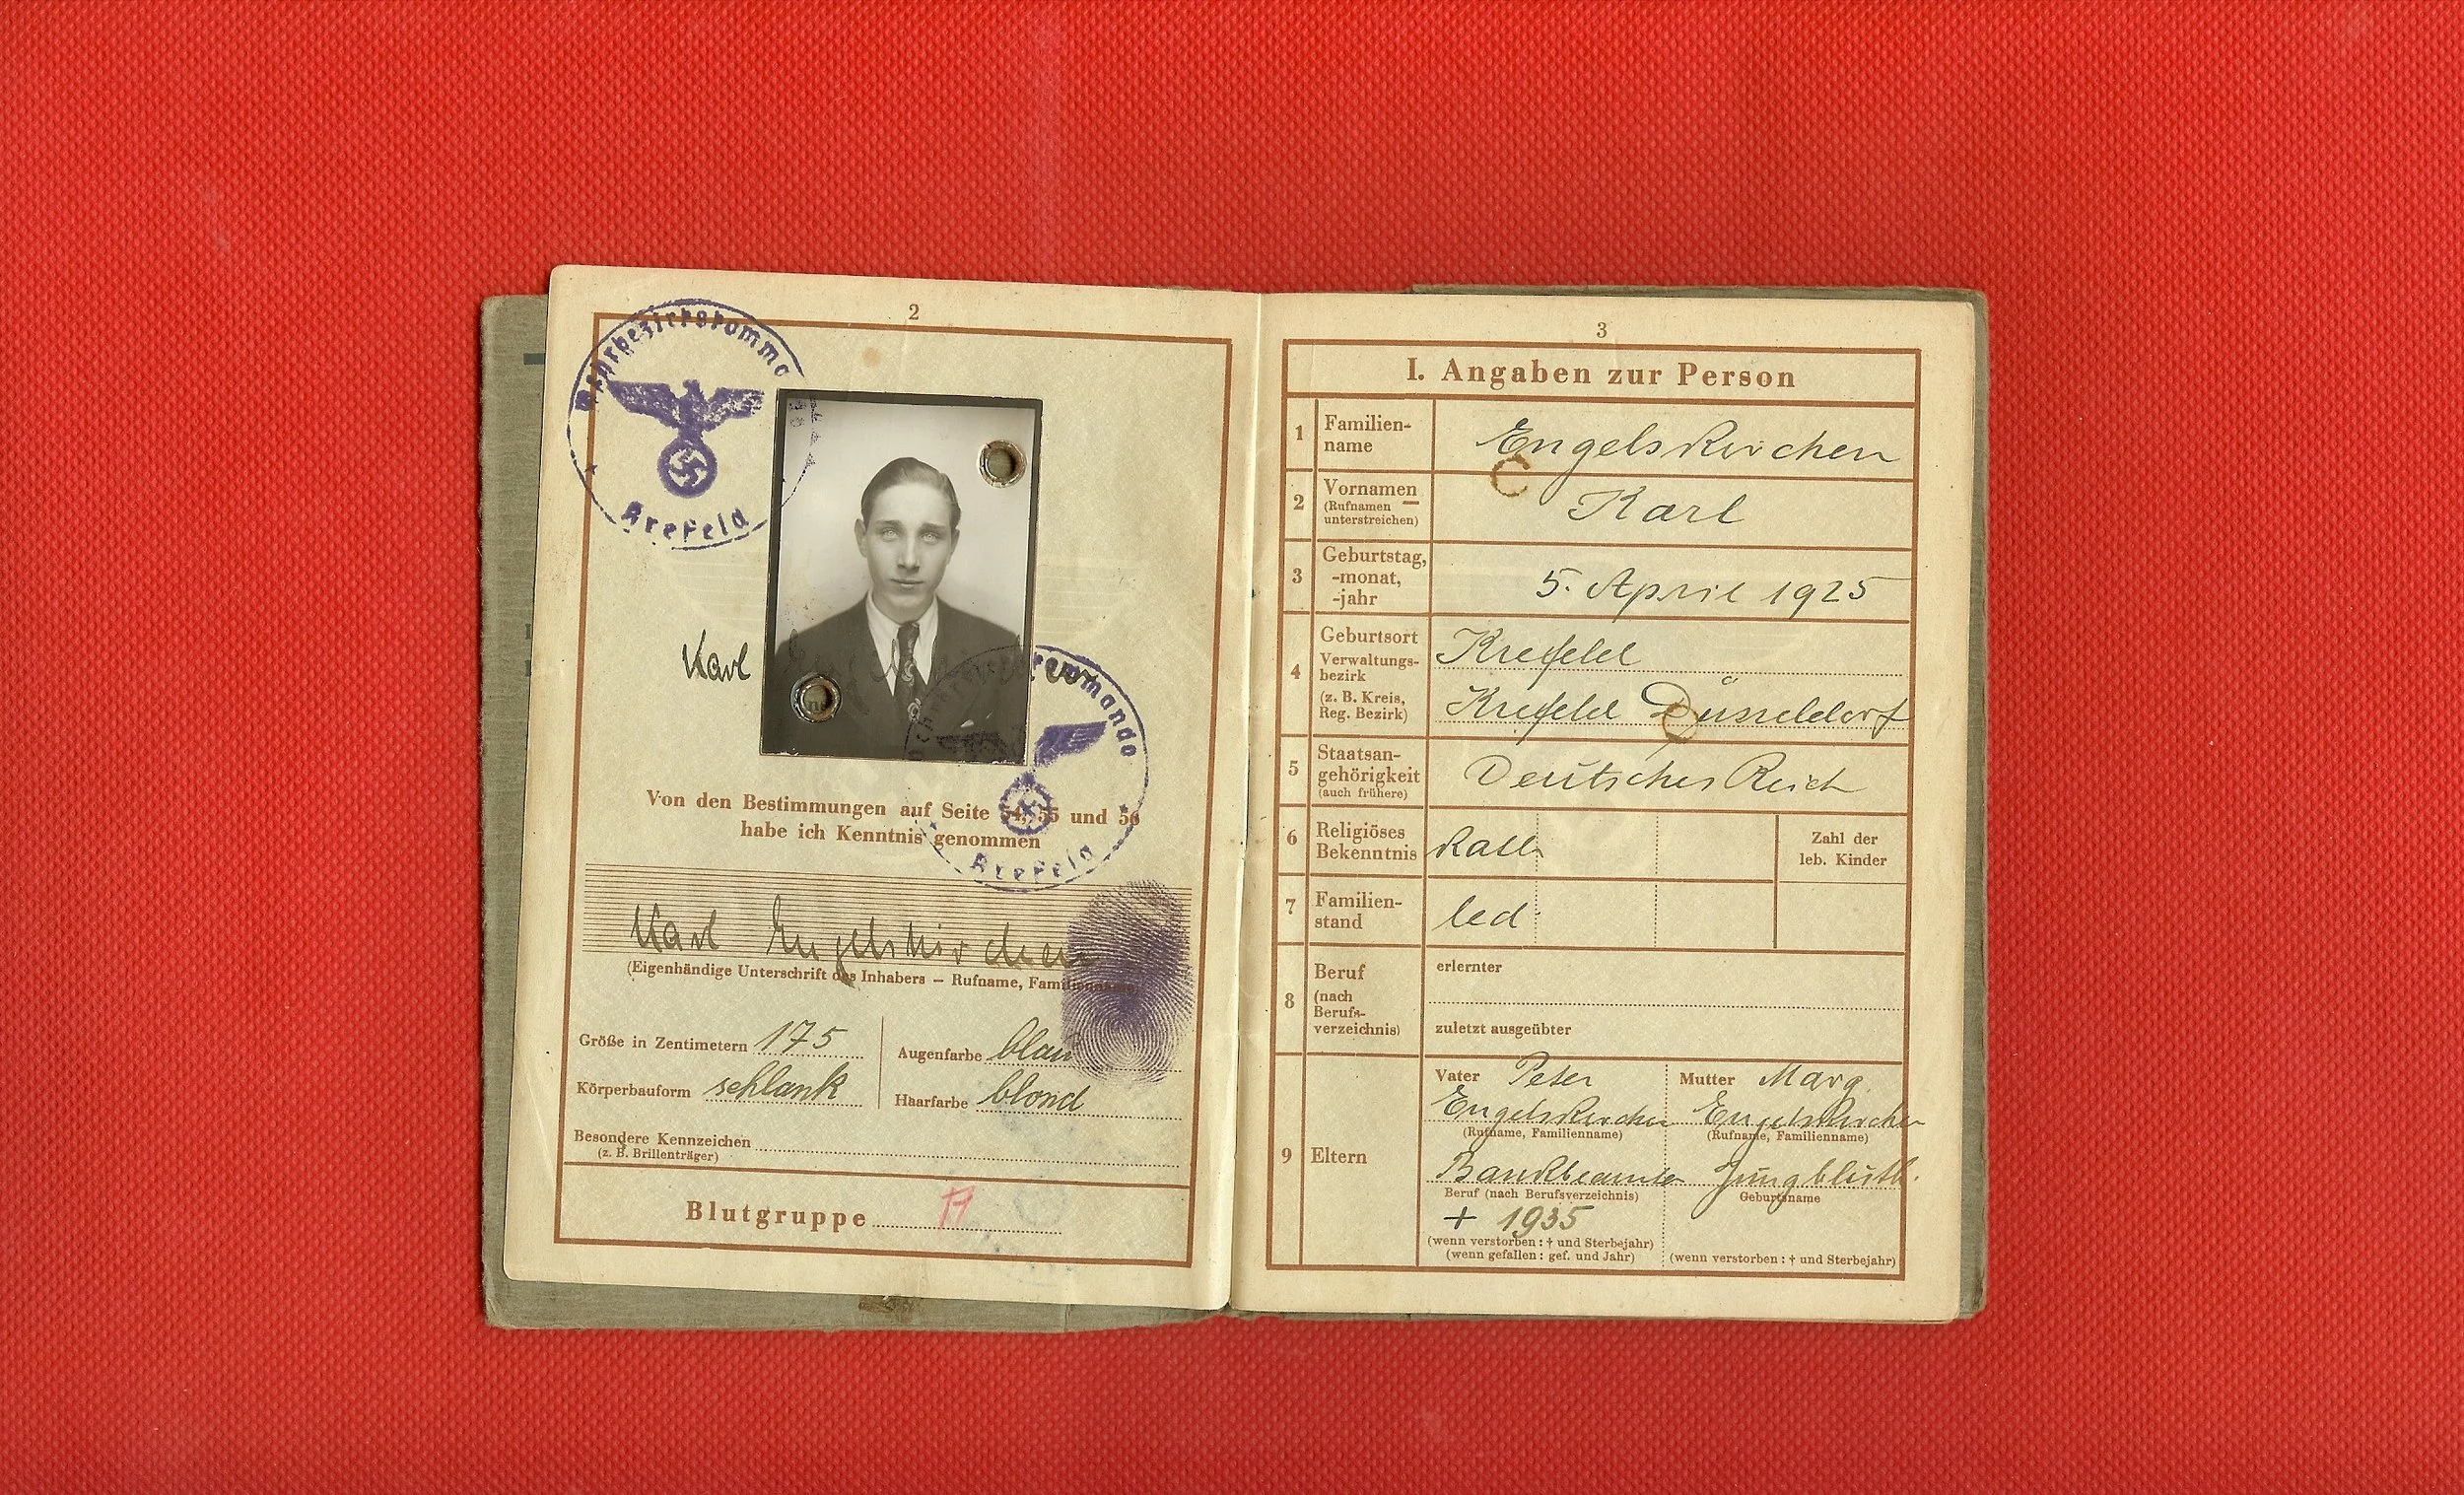 2
Wehrbezirkskomma
Krefeld
Karl
kommando
Krefeld
Von den Bestimmungen auf Seite 54, 55 und 56
habe ich Kenntnis genommen
Karl Engelskirchen
(Eigenhändige Unterschrift des Inhabers – Rufname, Familienname)
Größe in Zentimetern 175
Augenfarbe blau
Körperbauform schlank
Haarfarbe blond
Besondere Kennzeichen
(z. B. Brillenträger)
Blutgruppe A
3
I. Angaben zur Person
1 Familien-
name
Engelskirchen
2 Vornamen
(Rufnamen
unterstreichen)
Karl
3 Geburtstag,
-monat,
-jahr
5. April 1925
4 Geburtsort
Verwaltungs-
bezirk
(z. B. Kreis,
Reg. Bezirk)
Krefeld
Krefeld Düsseldorf
5 Staatsan-
gehörigkeit
(auch frühere)
Deutsches Reich
6 Religiöses
Bekenntnis
Kath
Zahl der
leb. Kinder
7 Familien-
stand
led.
8 Beruf
(nach
Berufs-
verzeichnis)
erlernter
zuletzt ausgeübter
9 Eltern
Vater Peter
Engelskirchen
(Rufname, Familienname)
Bankbeamter
Beruf (nach Berufsverzeichnis)
+ 1935
(wenn verstorben: † und Sterbejahr)
(wenn gefallen: gef. und Jahr)
Mutter Marg.
Engelskirchen
(Rufname, Familienname)
Jungbluth.
Geburtsname
(wenn verstorben: † und Sterbejahr)